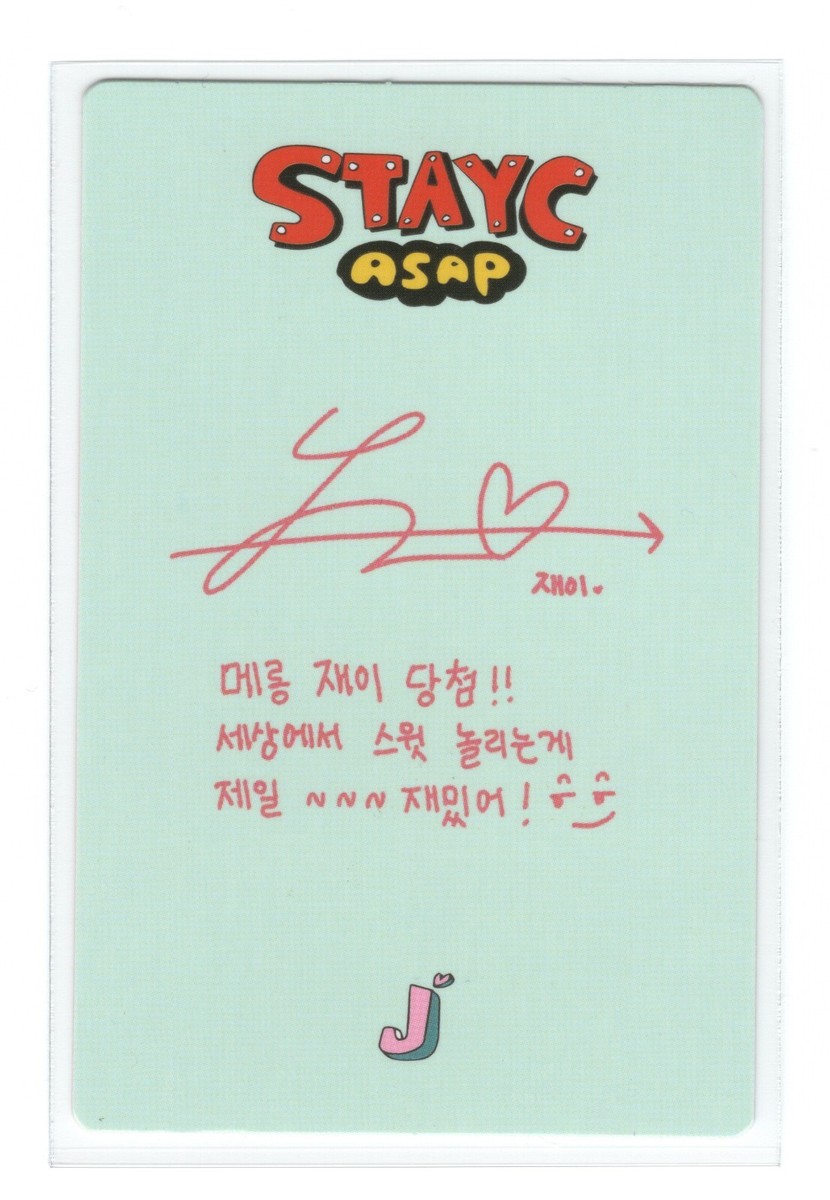 STAYC
ASAP
재이♥
메롱 재이 당첨!!
세상에서 스윗 놀리는게
제일 ~~~ 재밌어!
J